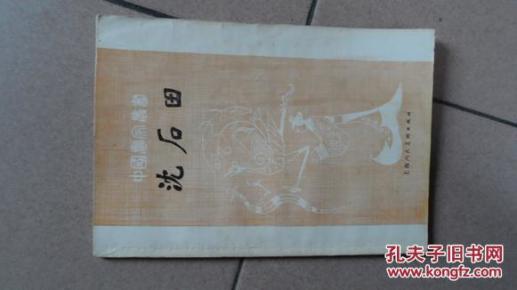 中國畫家叢書
沈石田
上海人民美術出版社
孔夫子旧书网
www.kongfz.com